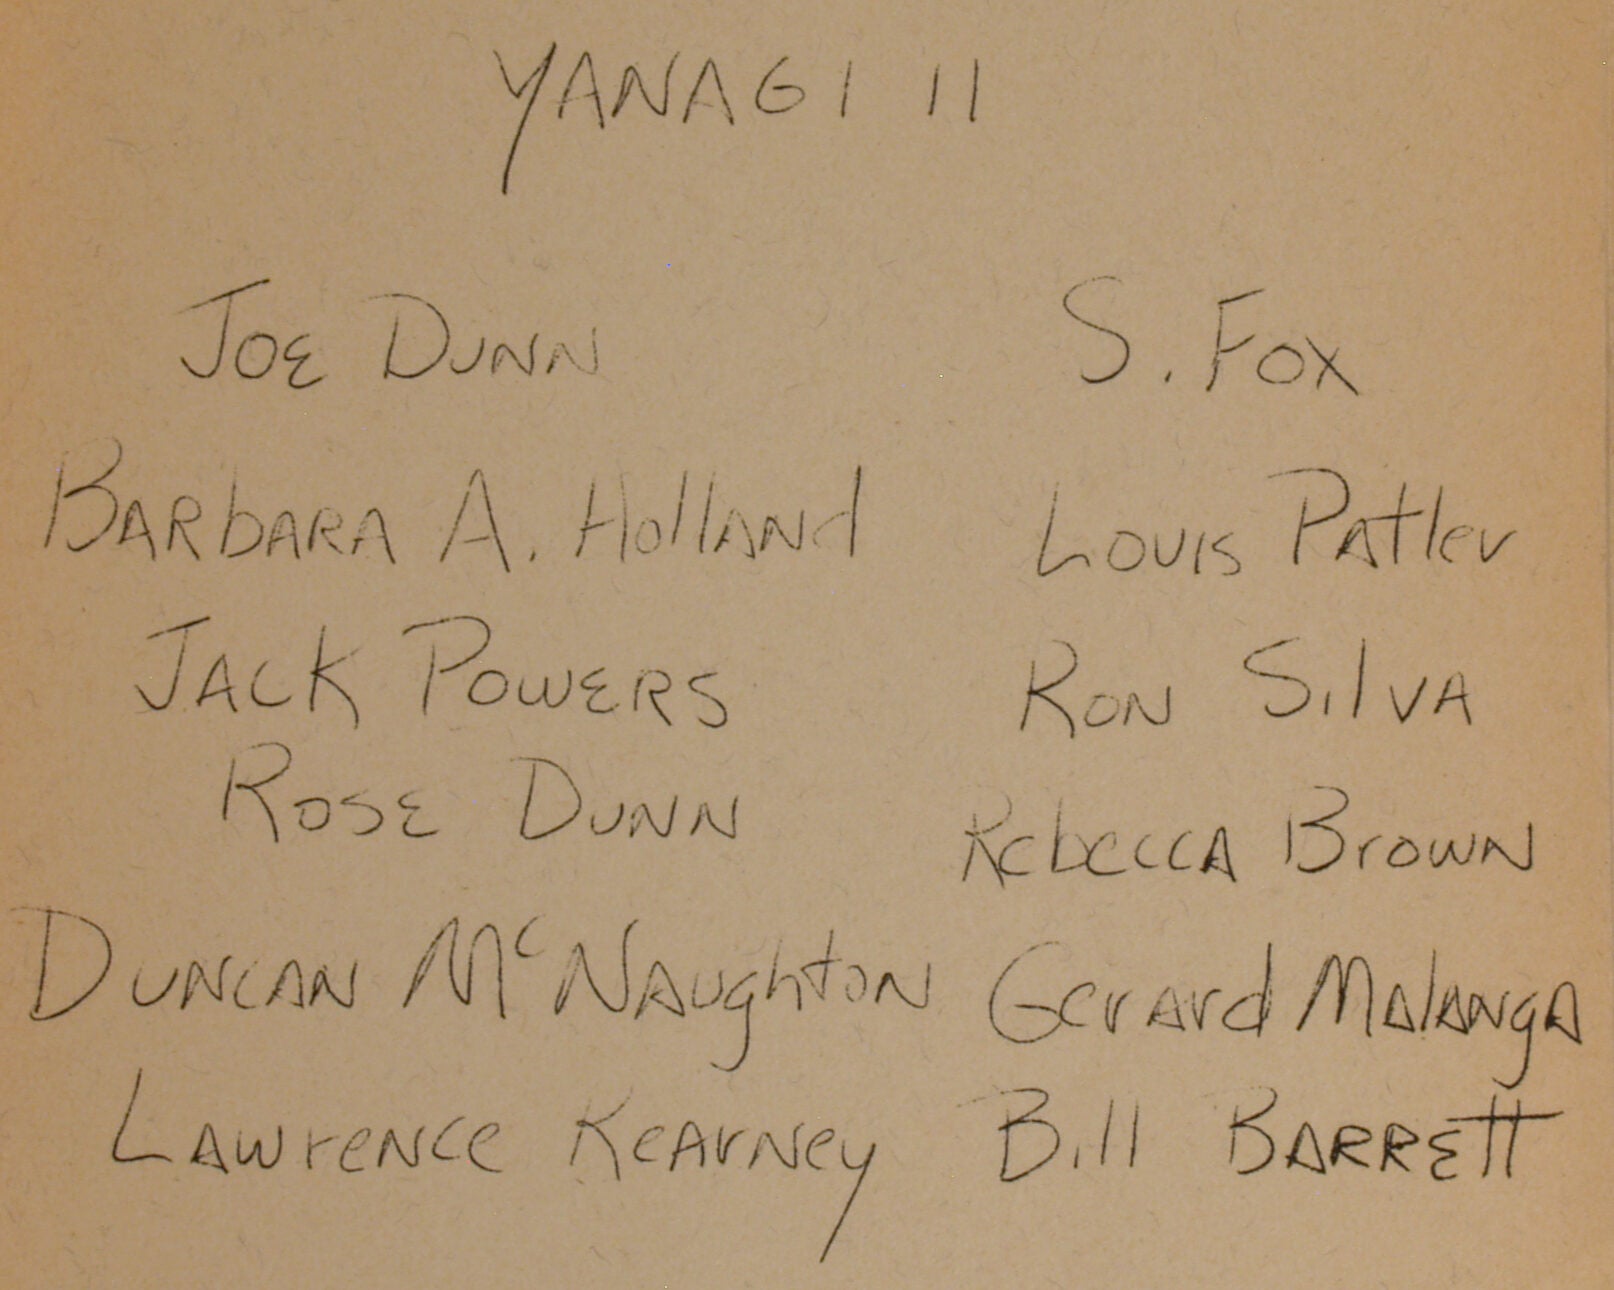 YANAGI II
JOE DUNN
BARbARA A. HollANd
JACK POWERS
ROSE DUNN
DUNCAN McNAughtoN
LAWreNce KeArNey
S. FOX
LOUIS PAtler
RON SilVA
RebeccA BrowN
GerArd MAlANgA
Bill BARREtt